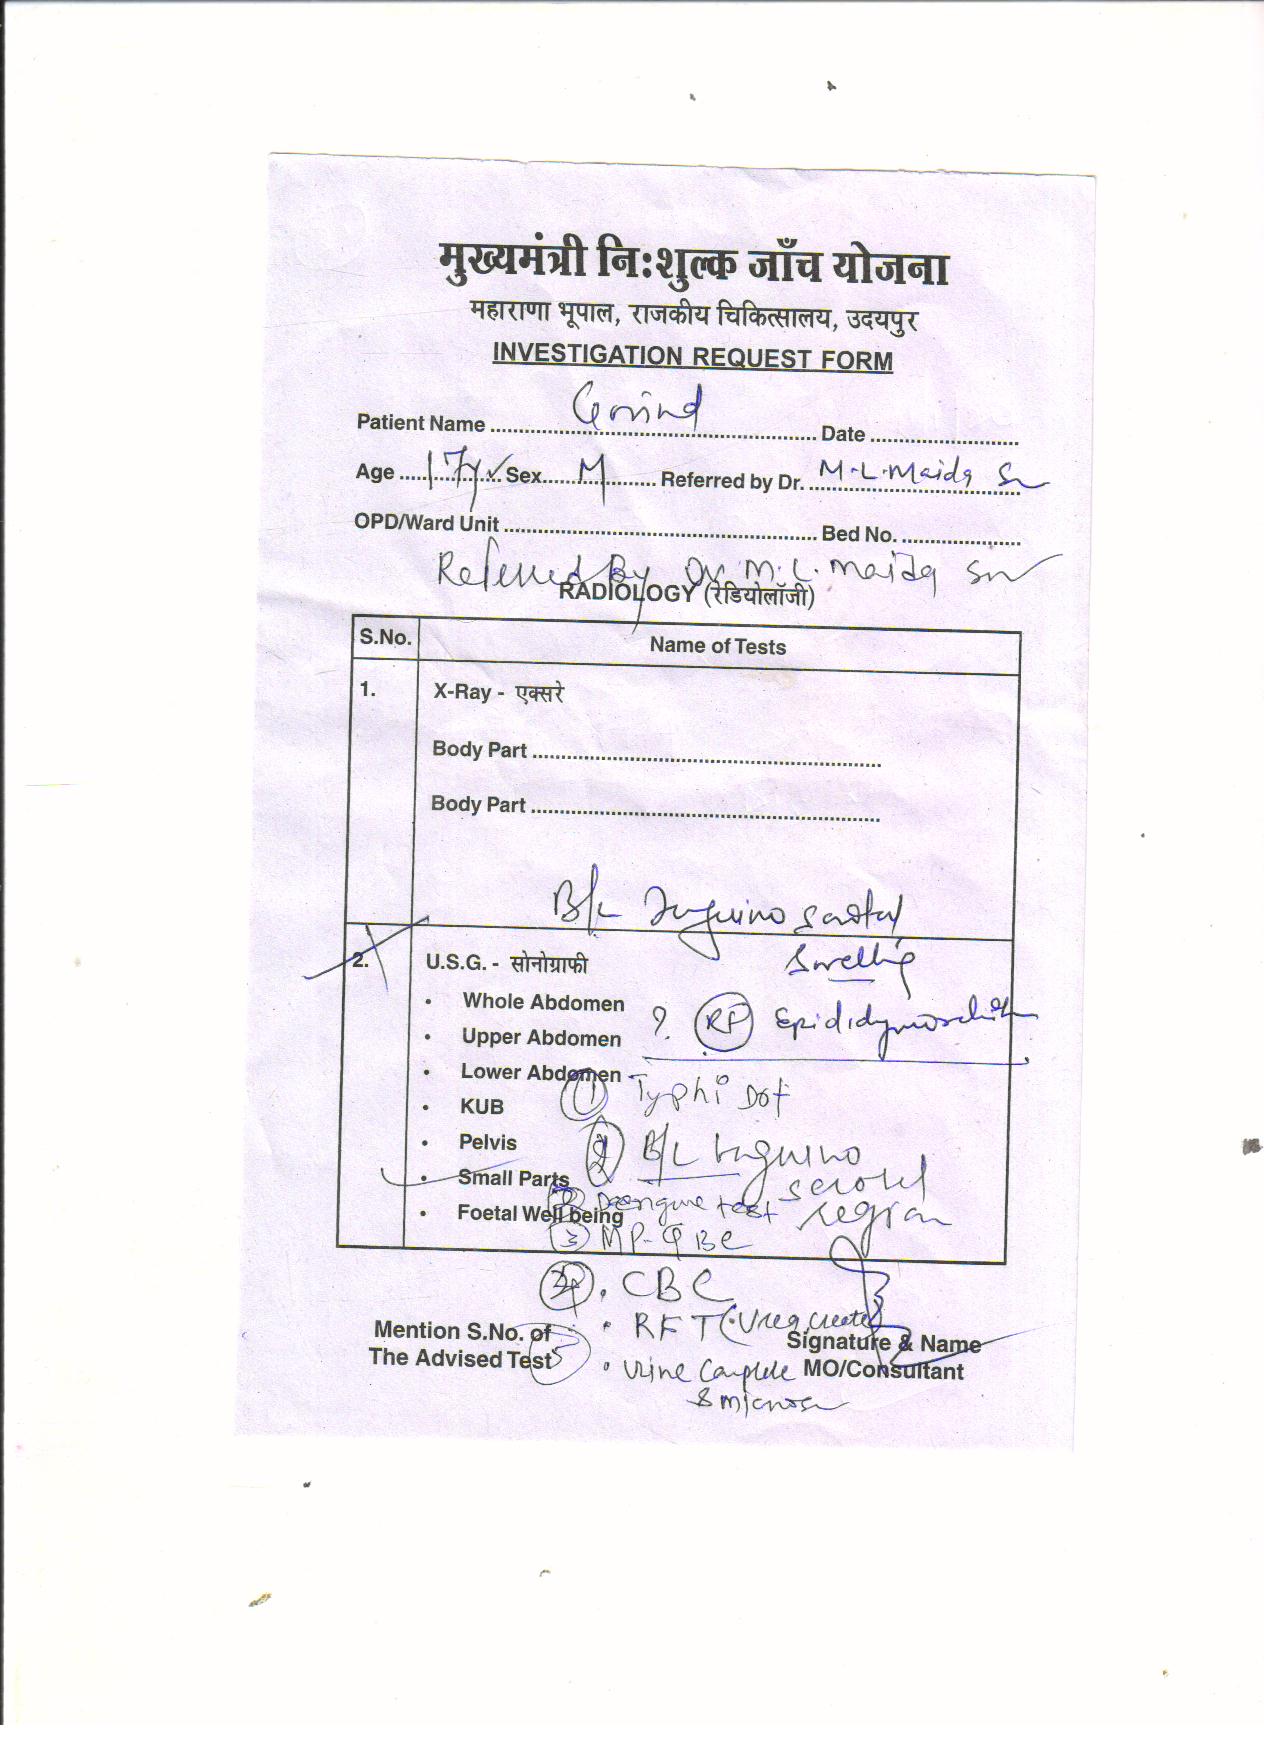 मुख्यमंत्री नि:शुल्क जाँच योजना
महाराणा भूपाल, राजकीय चिकित्सालय, उदयपुर
INVESTIGATION REQUEST FORM
Patient Name Govind Date
Age 17y Sex M Referred by Dr. M.L. Maida Sr
OPD/Ward Unit Bed No.
Referred By Dr M.L. Maida Sr
RADIOLOGY (रेडियोलॉजी)
S.No. Name of Tests
1. X-Ray - एक्सरे
Body Part
Body Part
B/L Inguino Scrotal
Swelling
2. U.S.G. - सोनोग्राफी
• Whole Abdomen
? RP Epididymoorchitis
• Upper Abdomen
• Lower Abdomen
① Typhi Dot
• KUB
• Pelvis
2 B/L Inguino
• Small Parts scrotal
Deengue test region
• Foetal Well being
③ MP-QBC
4 . CBC
• RFT (Urea, Create)
Mention S.No. of
The Advised Test
Signature & Name
MO/Consultant
5 • Urine Complete
& micros